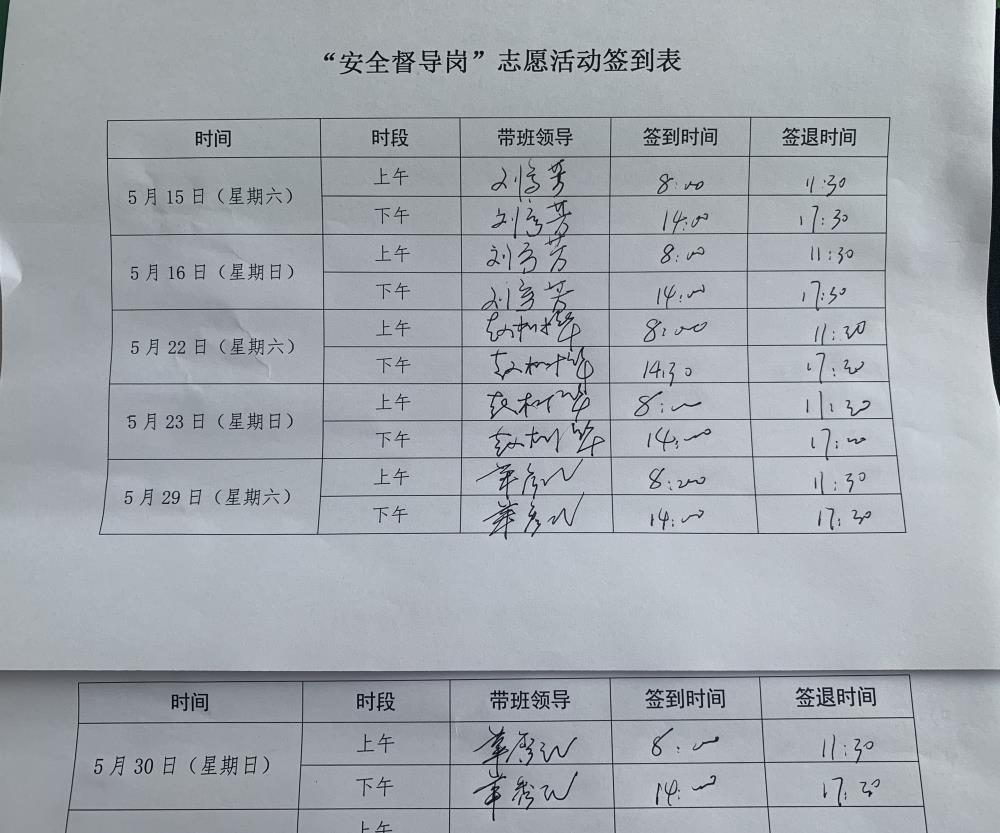 “安全督导岗”志愿活动签到表
时间 时段 带班领导 签到时间 签退时间
5月15日（星期六） 上午 8:00 11:30
下午 14:00 17:30
5月16日（星期日） 上午 8:00 11:30
下午 14:00 17:30
5月22日（星期六） 上午 8:00 11:30
下午 14:30 17:30
5月23日（星期日） 上午 8:00 11:30
下午 14:00
5月29日（星期六） 上午 8:00 11:30
下午 14:00 17:30
时间 时段 带班领导 签到时间 签退时间
5月30日（星期日） 上午 8:00 11:30
下午 14:00 17:30
上午